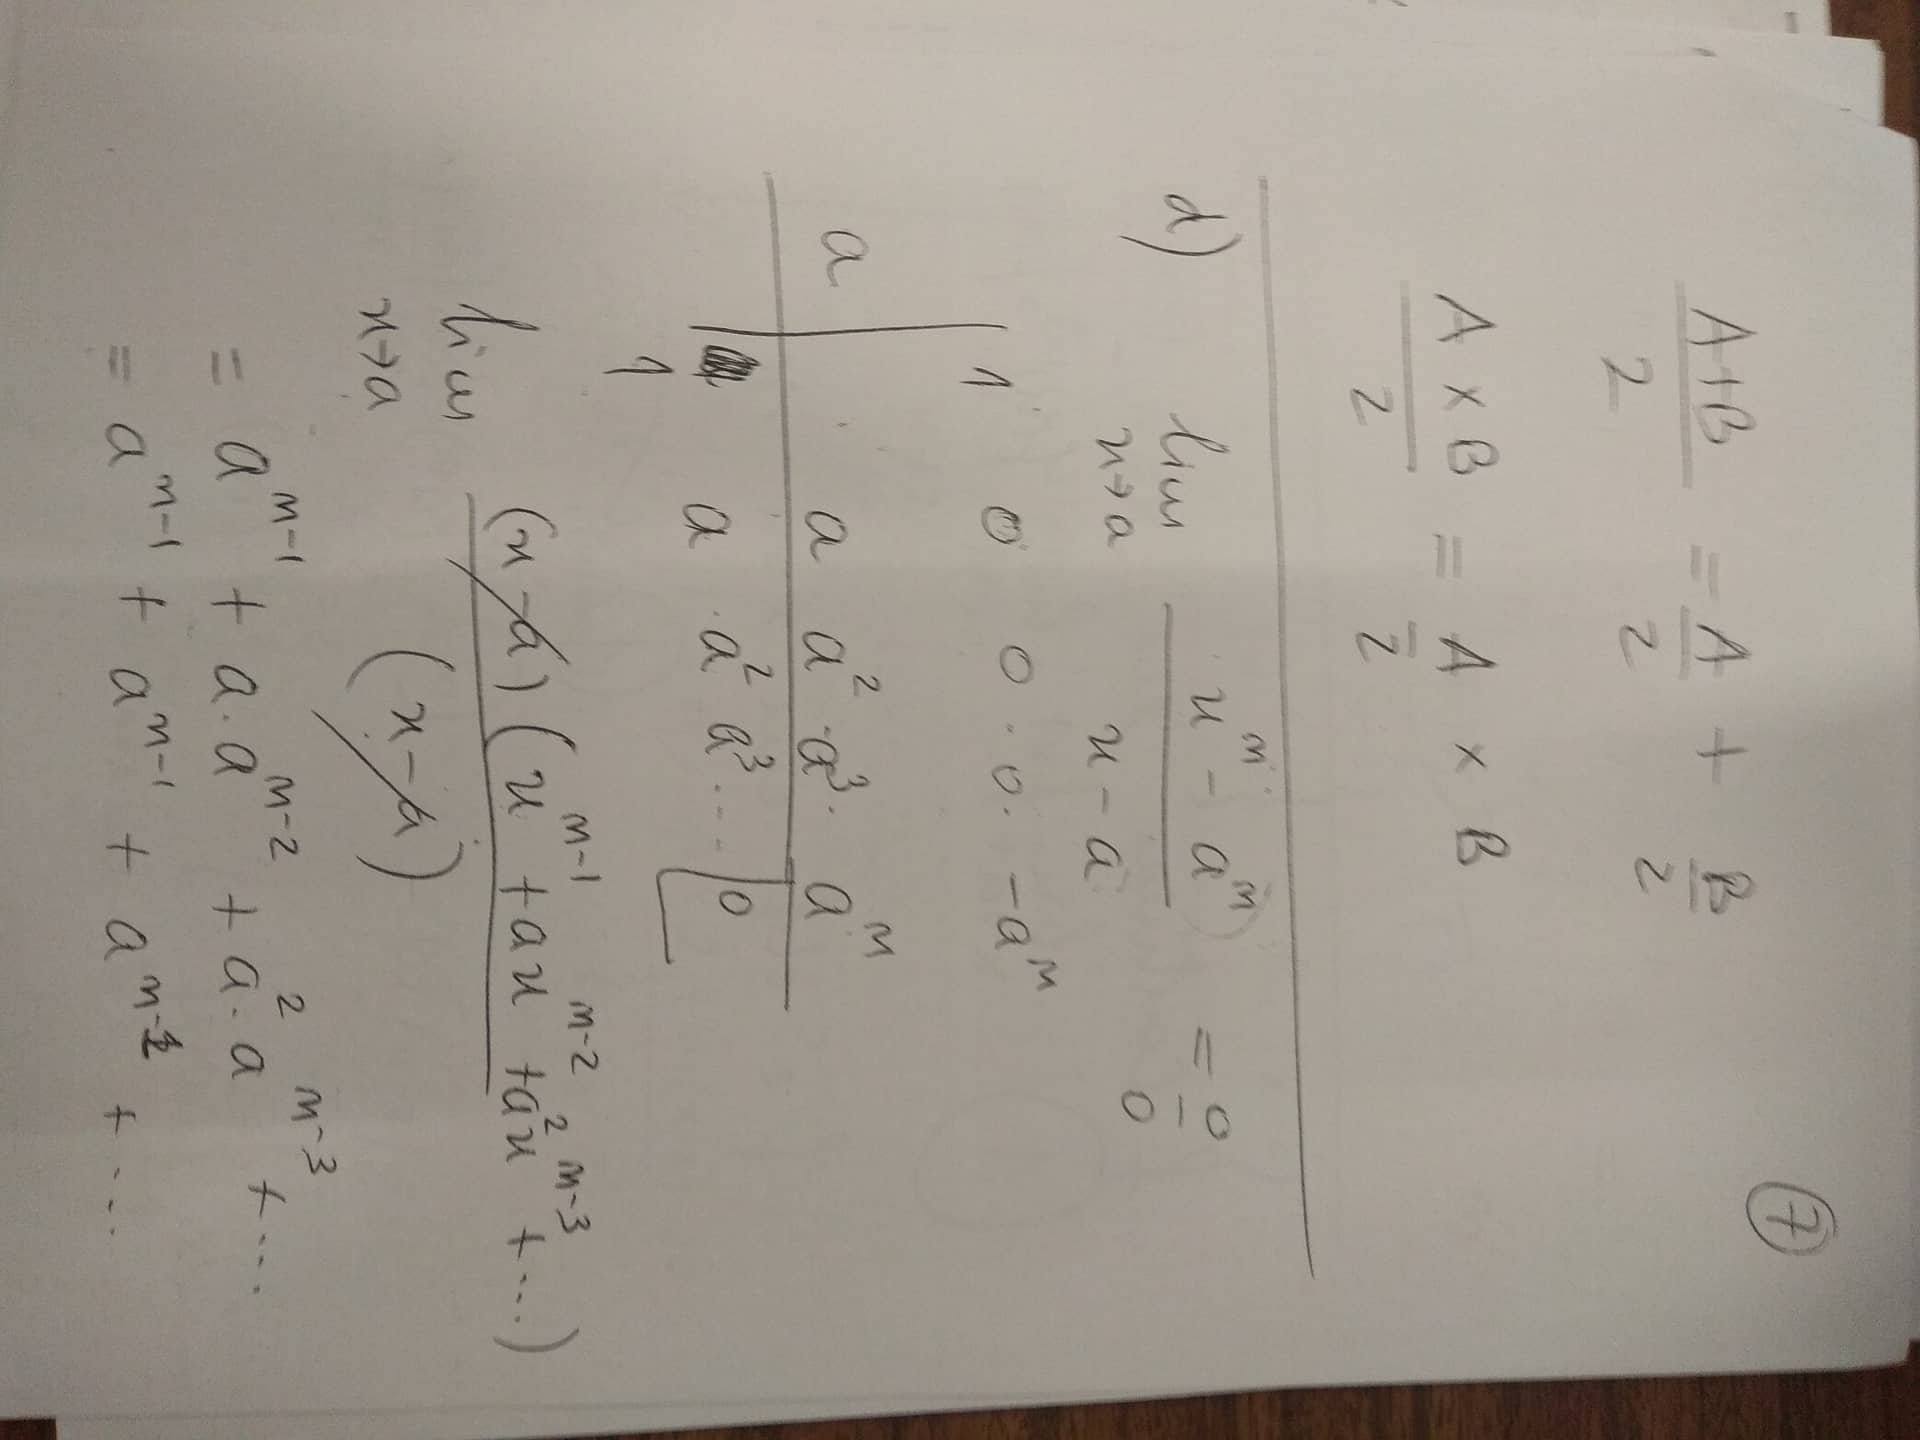 7
A+B/2 = A/2 + B/2
A × B/2 = A/2 × B
d) lim x→a (x^n - a^n)/(x - a) = 0/0
1 0 0 . 0 . -a^n
a | a a² . a³ . a^n
1 a a² a³ ... 0
lim x→a (x-a)(x^(n-1) + ax^(n-2) + a²x^(n-3) + ...)/(x-a)
= a^(n-1) + a.a^(n-2) + a².a^(n-3) + ...
= a^(n-1) + a^(n-1) + a^(n-1) + ...